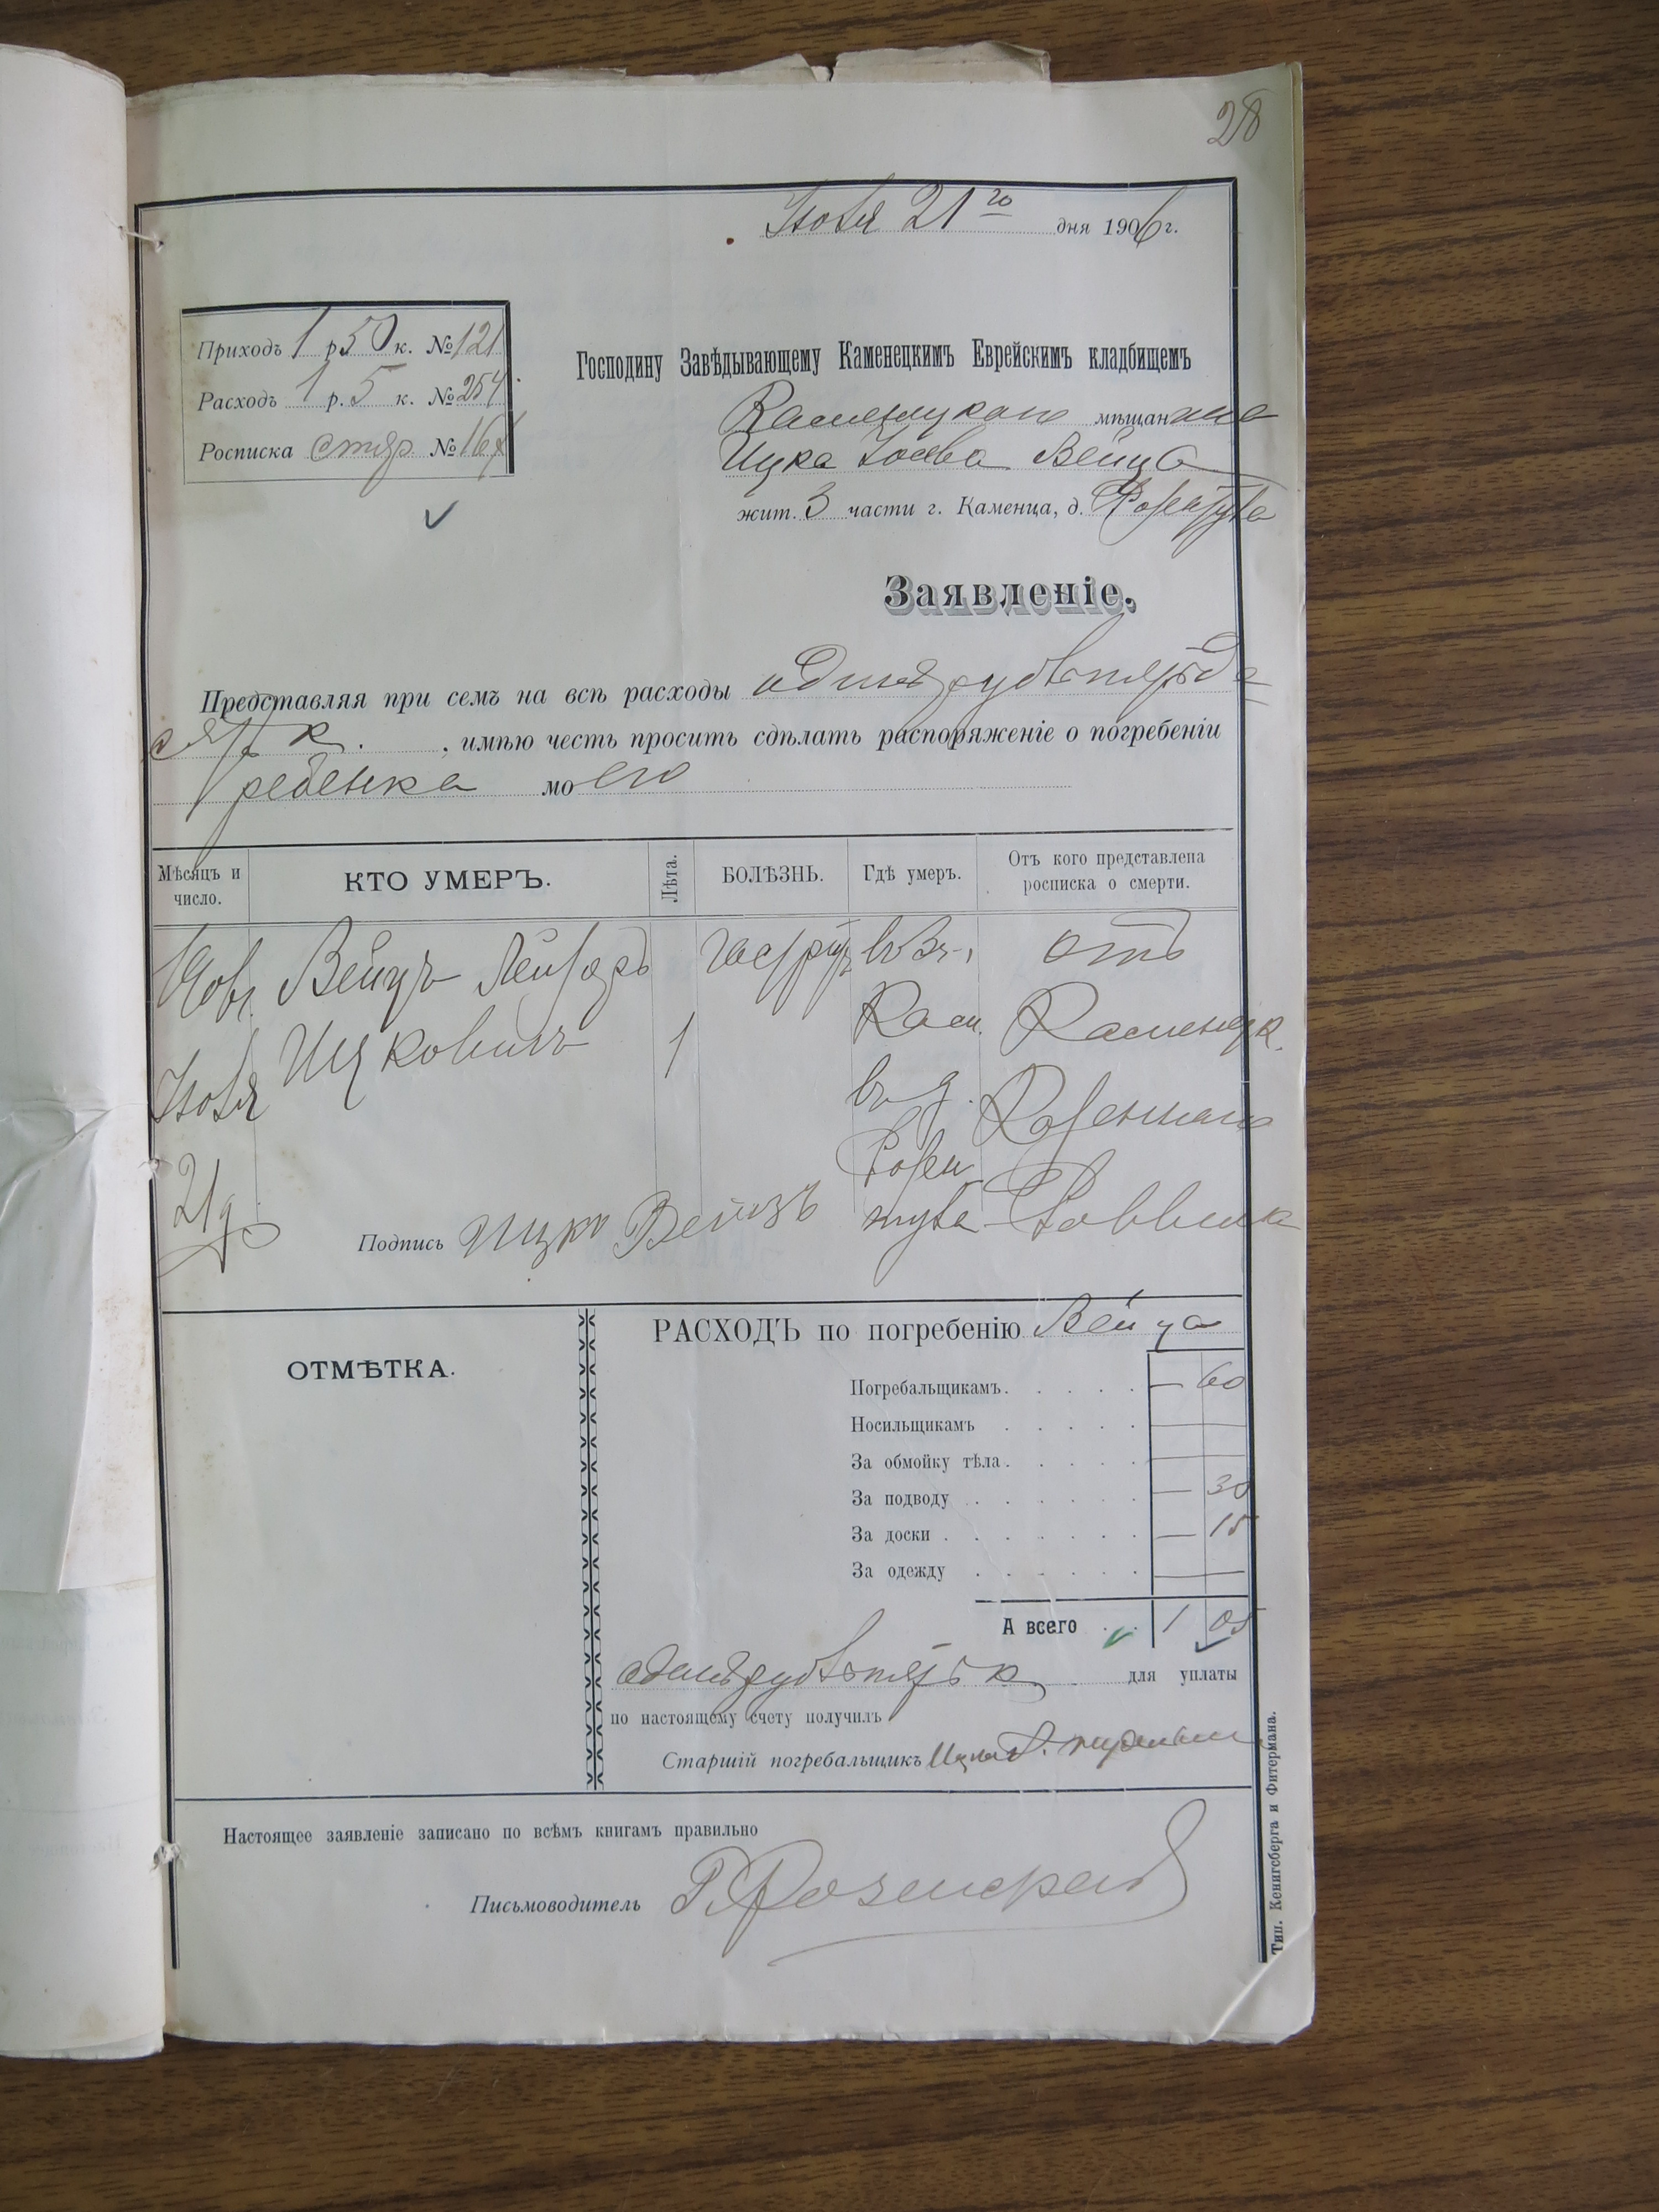 28
Іюля 21го дня 1906 г.
Приходъ 1 р 50 к. № 121
Расходъ 1 р. 5 к. № 254
Росписка стар. № 167
Господину Завѣдывающему Каменецкимъ Еврейскимъ кладбищемъ
Каменецкаго мѣщанина
Ицка Вейца
жит. 3 части г. Каменца, д.
Заявленіе.
Представляя при семъ на всѣ расходы одинъ рубль пятьде
сятъ к. , имѣю честь просить сдѣлать распоряженіе о погребеніи
ребенка моего
Мѣсяцъ и число.
КТО УМЕРЪ.
Лѣта.
БОЛѢЗНЬ.
Гдѣ умеръ.
Отъ кого представлена росписка о смерти.
Вейцъ отъ
Ицковичъ 1 Кам. Каменецк.
Іюля въ д. Казеннаго
21 д. Раввина
Подпись Ицко Вейцъ
ОТМѢТКА.
РАСХОДЪ по погребенію Вейца
Погребальщикамъ. — 60
Носильщикамъ
За обмойку тѣла.
За подводу — 30
За доски — 15
За одежду
А всего 1 05
одинъ рубль пять к для уплаты
по настоящему счету получилъ
Старшій погребальщикъ
Настоящее заявленіе записано по всѣмъ книгамъ правильно
Письмоводитель
Тип. Кенигсберга и Фитермана.